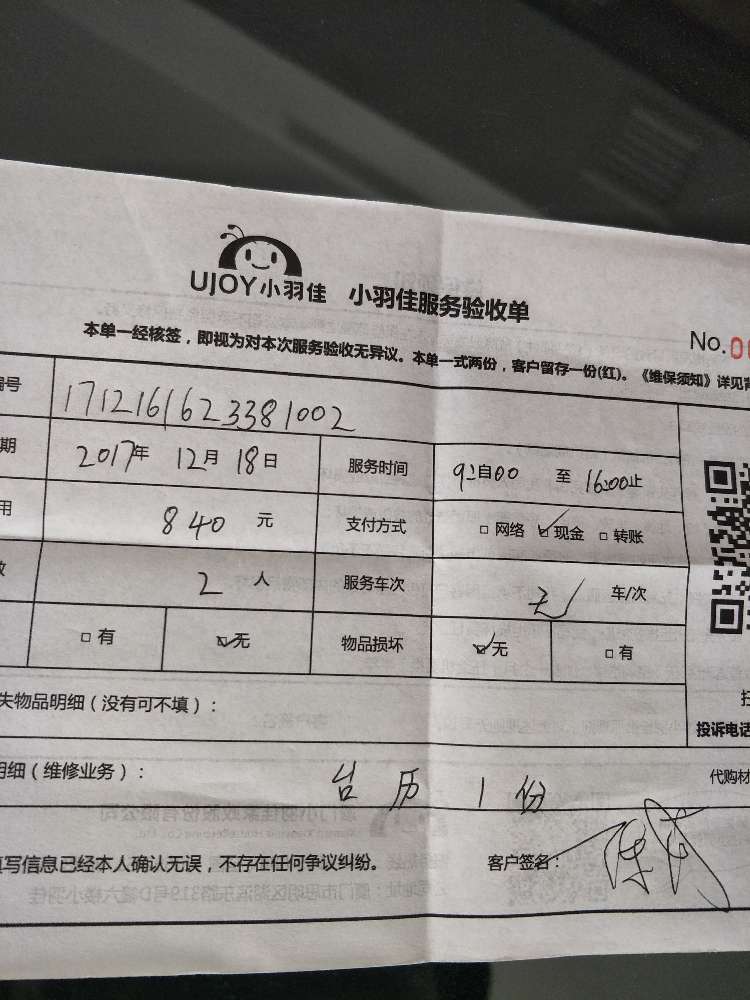 UJOY小羽佳 小羽佳服务验收单
No.0
本单一经核签，即视为对本次服务验收无异议。本单一式两份，客户留存一份(红)。《维保须知》详见背
号 1712161623381002
期 2017年 12月 18日 服务时间 9:自00 至 16:00止
用 840 元 支付方式 □ 网络 ☑ 现金 □ 转账
数 2 人 服务车次 无 车/次
□ 有 ☑ 无 物品损坏 ☑ 无 □ 有
失物品明细（没有可不填）：
投诉电话
明细（维修业务）： 台历 1 份
代购材
填写信息已经本人确认无误，不存在任何争议纠纷。 客户签名：